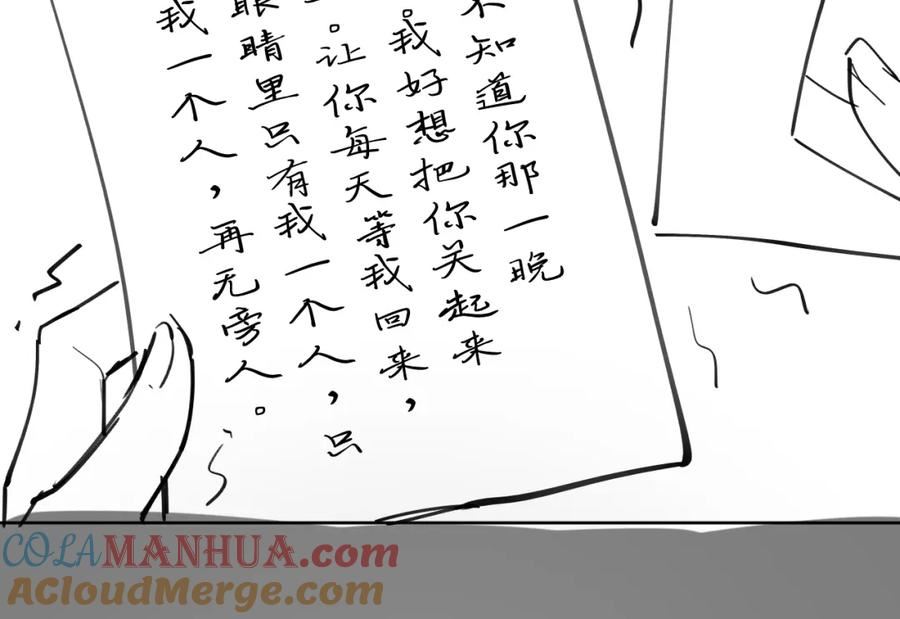 不知道你那一晚
。我好想把你关起来
。让你每天等我回来，
眼睛里只有我一个人，只
我一个人，再无旁人。
COLAMANHUA.com
ACloudMerge.com